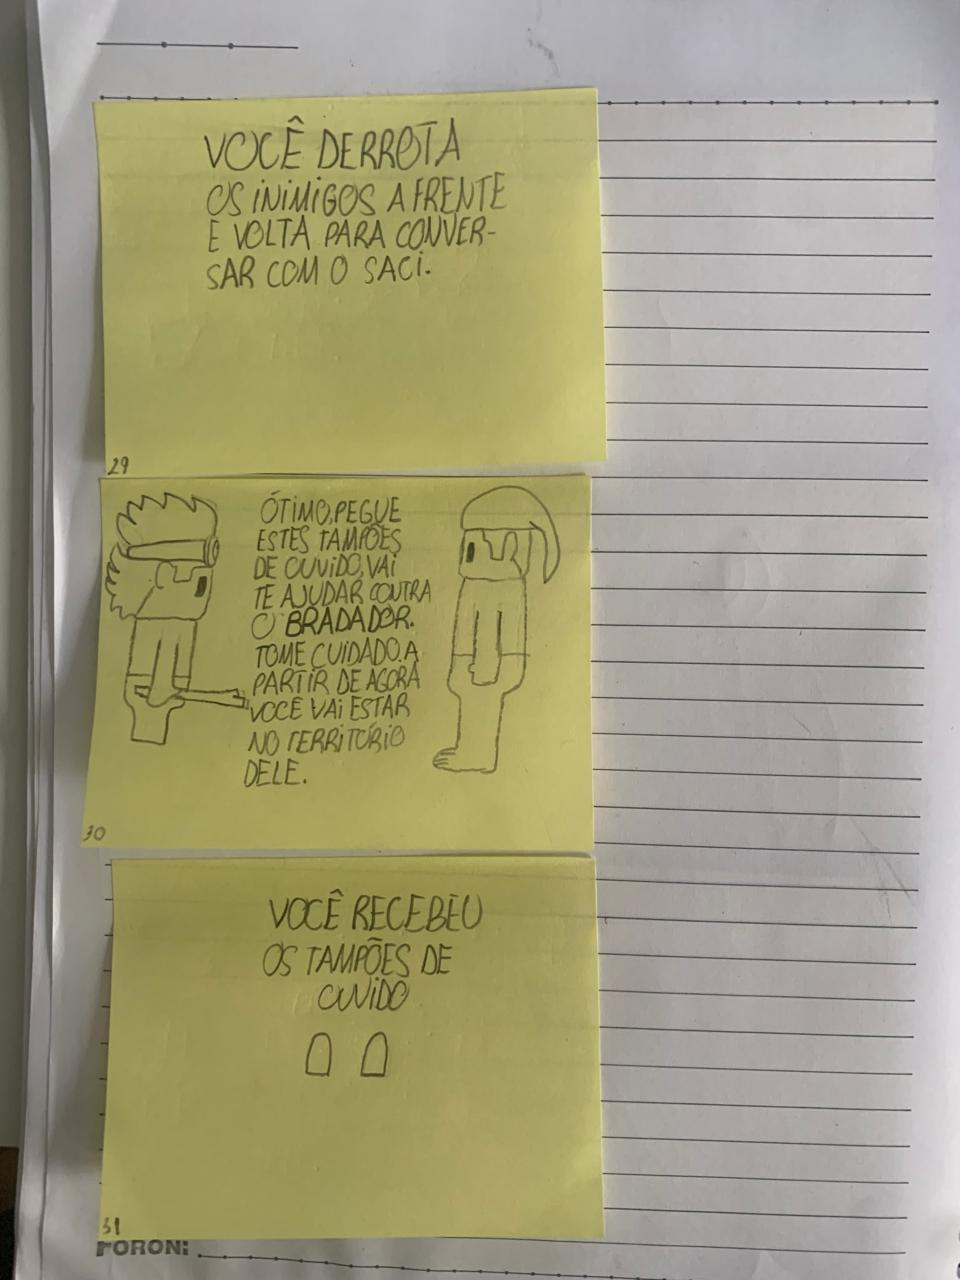 VOCÊ DERROTA
OS INIMIGOS A FRENTE
E VOLTA PARA CONVER-
SAR COM O SACI.
29
ÓTIMO, PEGUE
ESTES TAMPÕES
DE OUVIDO, VAI
TE AJUDAR CONTRA
O BRADADOR.
TOME CUIDADO. A
PARTIR DE AGORA
VOCÊ VAI ESTAR
NO TERRITÓRIO
DELE.
30
VOCÊ RECEBEU
OS TAMPÕES DE
OUVIDO
31
FORONI